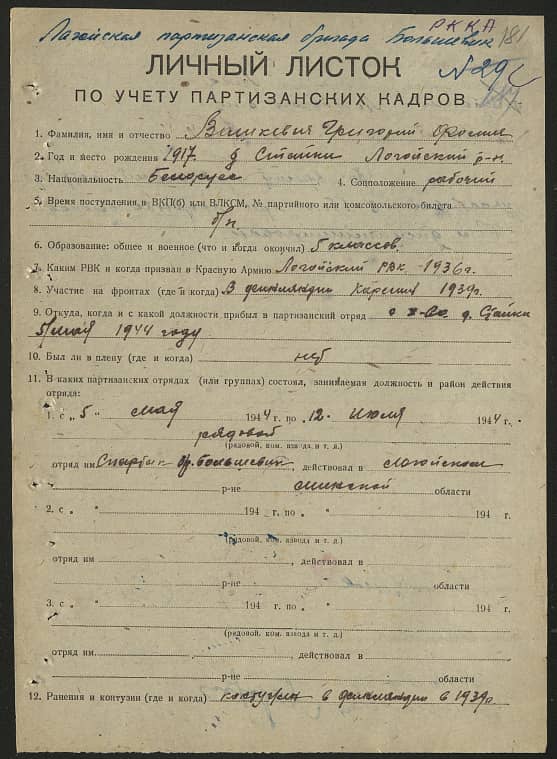 РККА 181
Лагойская партизанская бригада Большевик
ЛИЧНЫЙ ЛИСТОК
№ 29
ПО УЧЕТУ ПАРТИЗАНСКИХ КАДРОВ
1. Фамилия, имя и отчество Вашкевич Григорий
2. Год и место рождения 1917. д Стайки Логойский р-н.
3. Национальность Белорусс 4. Соцположение рабочий
5. Время поступления в ВКП(б) или ВЛКСМ, № партийного или комсомольского билета
б/п
6. Образование: общее и военное (что и когда окончил) 5 классов
7. Каким РВК и когда призван в Красную Армию Логойский РВК. 1936 г.
8. Участие на фронтах (где и когда) В финляндии 1939 г.
9. Откуда, когда и с какой должности прибыл в партизанский отряд д. Стайки
5/мая 1944 году
10. Был ли в плену (где и когда) нет
11. В каких партизанских отрядах (или группах) состоял, занимаемая должность и район действия
отряда:
1. с „ 5 " мая 1944 г. по „ 12 " Июля 1944 г.
рядовой
(рядовой, ком. взвода и т. д.)
отряд им бр. Большевик, действовал в Логойском
р-не минской области
2. с „ " 194 г. по „ " 194 г.
(рядовой, ком. взвода и т. д.)
отряд им , действовал в
р-не области
3. с „ " 194 г. по „ " 194 г.
(рядовой, ком. взвода и т. д.)
отряд им , действовал в
р-не области
12. Ранения и контузии (где и когда) контужен в финляндии в 1939 г.